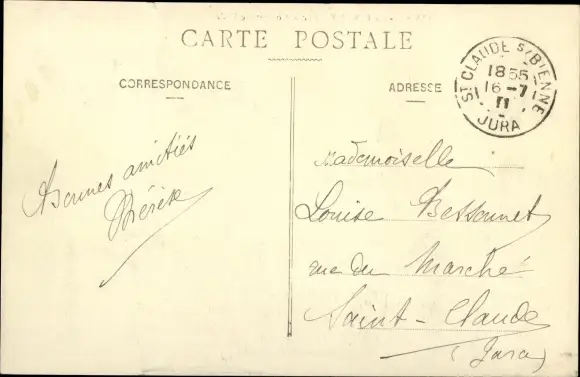 CARTE POSTALE
CORRESPONDANCE
ADRESSE
ST CLAUDE S/BIENNE
1855
16-7
11
JURA
Bonnes amitiés
Mademoiselle
Louise Bessonnet
rue du Marché
Saint-Claude
(Jura)